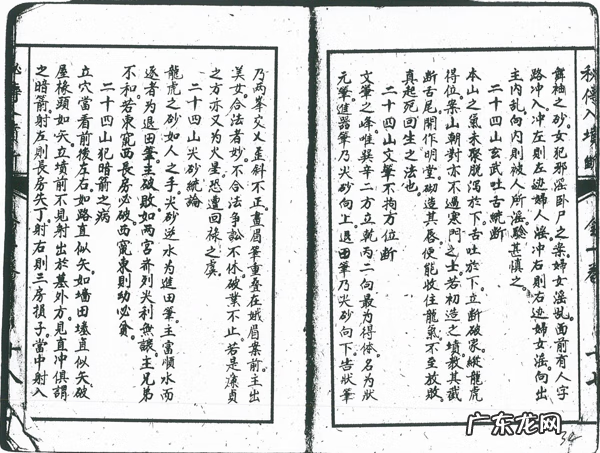 舞袖之砂女犯邪淫卧尸之案婦女淫亂面前有人字
路冲入冲左則左邊婦人淫冲右則右邊婦女淫向出
主內乱向內則被人所淫驗甚慎之
二十四山玄武吐舌統斷
本山之氣未聚脫潟於下吉吐於下立斷破家縱龍虎
得位案山朝對亦不過寒門之士若初造之墳教其戩
斷舌尾開作明堂砌造其唇便能收住龍氣不至放敗
真起死回生之法也
二十四山文筆不拘方位斷
文筆之峰唯巽辛二方立乾丙二向最為得体名為狀
元筆進器筆乃尖砂向上退田筆乃尖砂向下告狀筆
乃兩峯交义歪斜不正畫眉筆重叠在娥眉案前主出
美女合法者妙不合法爭訟不休破業不止若是廉貞
之方亦又为火星恐遭回祿之虞
二十四山尖砂總論
龍虎之砂如人之手尖砂逆水为進田筆主富順水而
逐者为退田筆主破敗如两宮斉列尖利無讓主兄弟
不和若東窜西長房必破西窜東則幼必貧
二十四山犯暗箭之病
立穴當看前後左右如路直似矢如墻田塍直似矢破
屋椽頭如矢立墳前不見射出於墓外方見直冲俱謂
之暗箭射左則長房失丁射右則三房損子當中射入
秘傳入墳斷
卷
二十七
十八
34
广东龙网